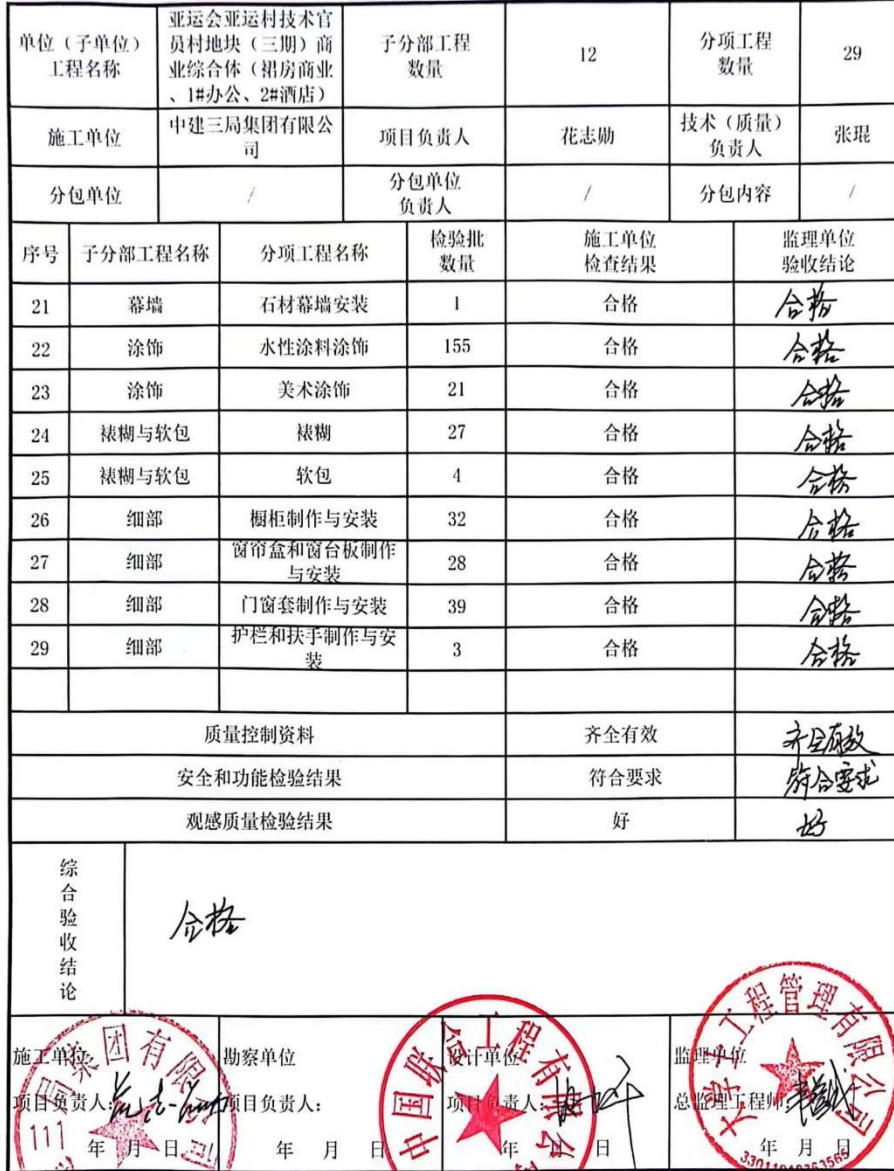 单位（子单位）工程名称 亚运会亚运村技术官员村地块（三期）商业综合体（裙房商业、1#办公、2#酒店） 子分部工程数量 12 分项工程数量 29
施工单位 中建三局集团有限公司 项目负责人 花志勋 技术（质量）负责人 张琨
分包单位 / 分包单位负责人 / 分包内容 /
序号 子分部工程名称 分项工程名称 检验批数量 施工单位检查结果 监理单位验收结论
21 幕墙 石材幕墙安装 1 合格 合格
22 涂饰 水性涂料涂饰 155 合格 合格
23 涂饰 美术涂饰 21 合格 合格
24 裱糊与软包 裱糊 27 合格 合格
25 裱糊与软包 软包 4 合格 合格
26 细部 橱柜制作与安装 32 合格 合格
27 细部 窗帘盒和窗台板制作与安装 28 合格 合格
28 细部 门窗套制作与安装 39 合格 合格
29 细部 护栏和扶手制作与安装 3 合格 合格
质量控制资料 齐全有效 齐全有效
安全和功能检验结果 符合要求 符合要求
观感质量检验结果 好 好
综合验收结论 合格
施工单位 勘察单位 设计单位 监理单位
项目负责人： 花志勋 项目负责人： 项目负责人： 总监理工程师：
年 月 日 年 月 日 年 月 日 年 月 日
局集团有限公司
111
中国联合工程有限公
大学工程管理有限公司